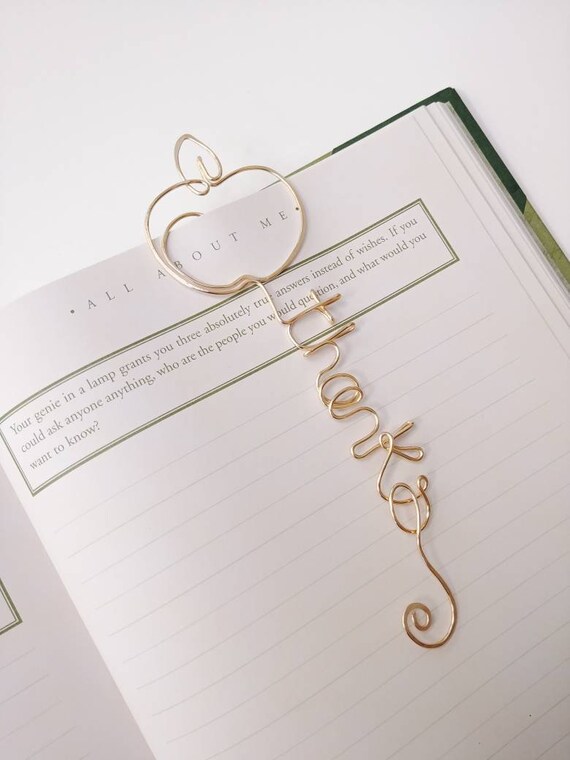 • ALL ABOUT ME •
Your genie in a lamp grants you three absolutely true answers instead of wishes. If you
could ask anyone anything, who are the people you would question, and what would you
want to know?
thanks